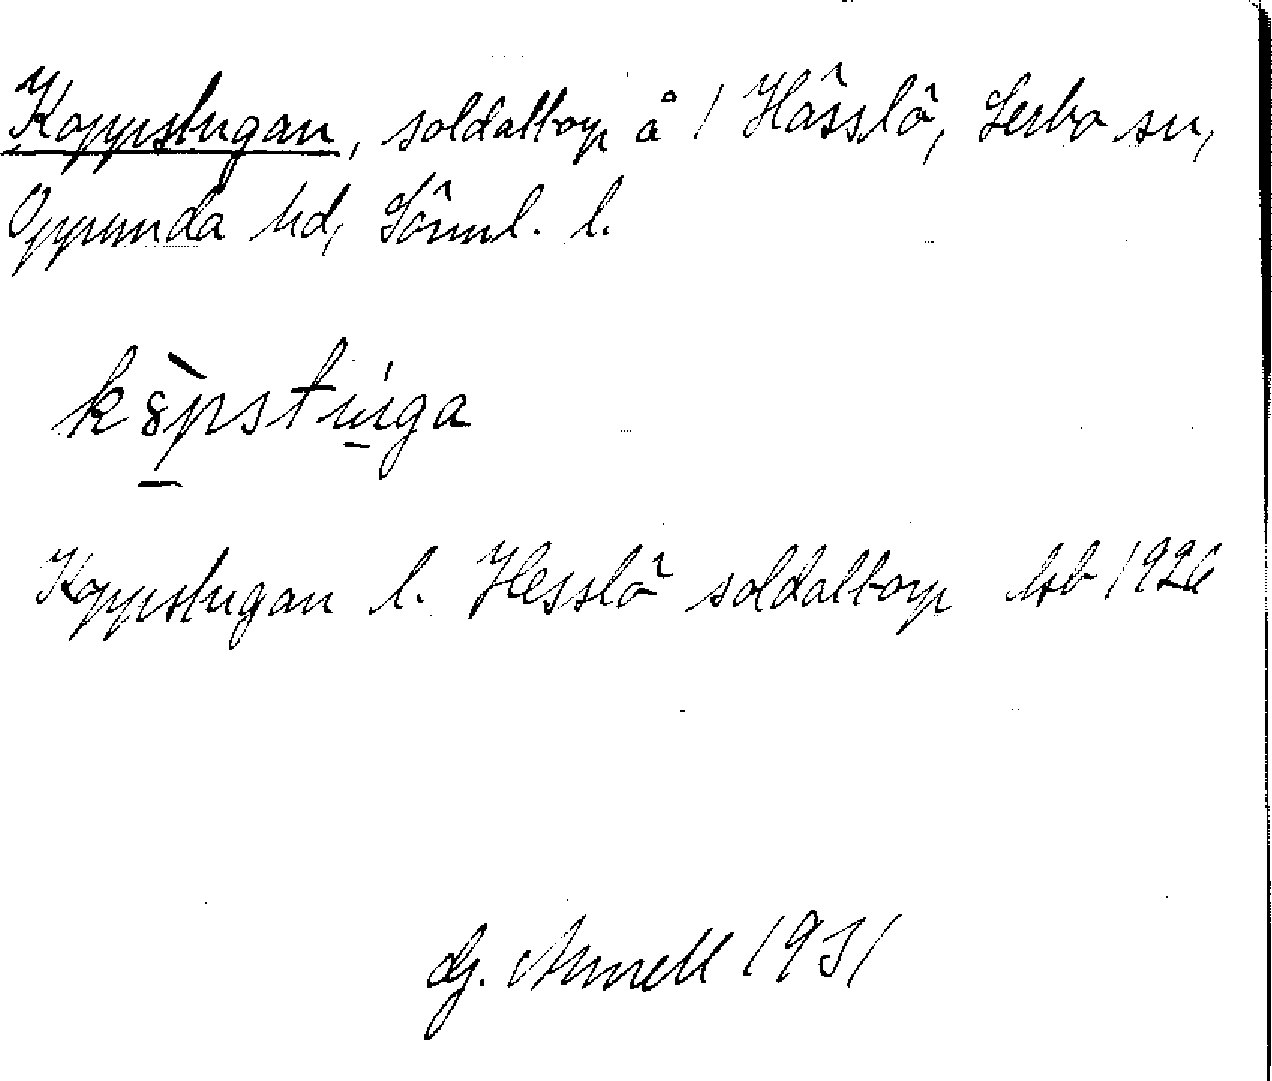 Koppstugan, soldattorp å 1 Hässlö, Lerbo sn,
Oppunda hd, Sörml. l.
kȣ̀pstúga
Koppstugan l. Hesslö soldattorp hfb 1926
G. Arnell 1931